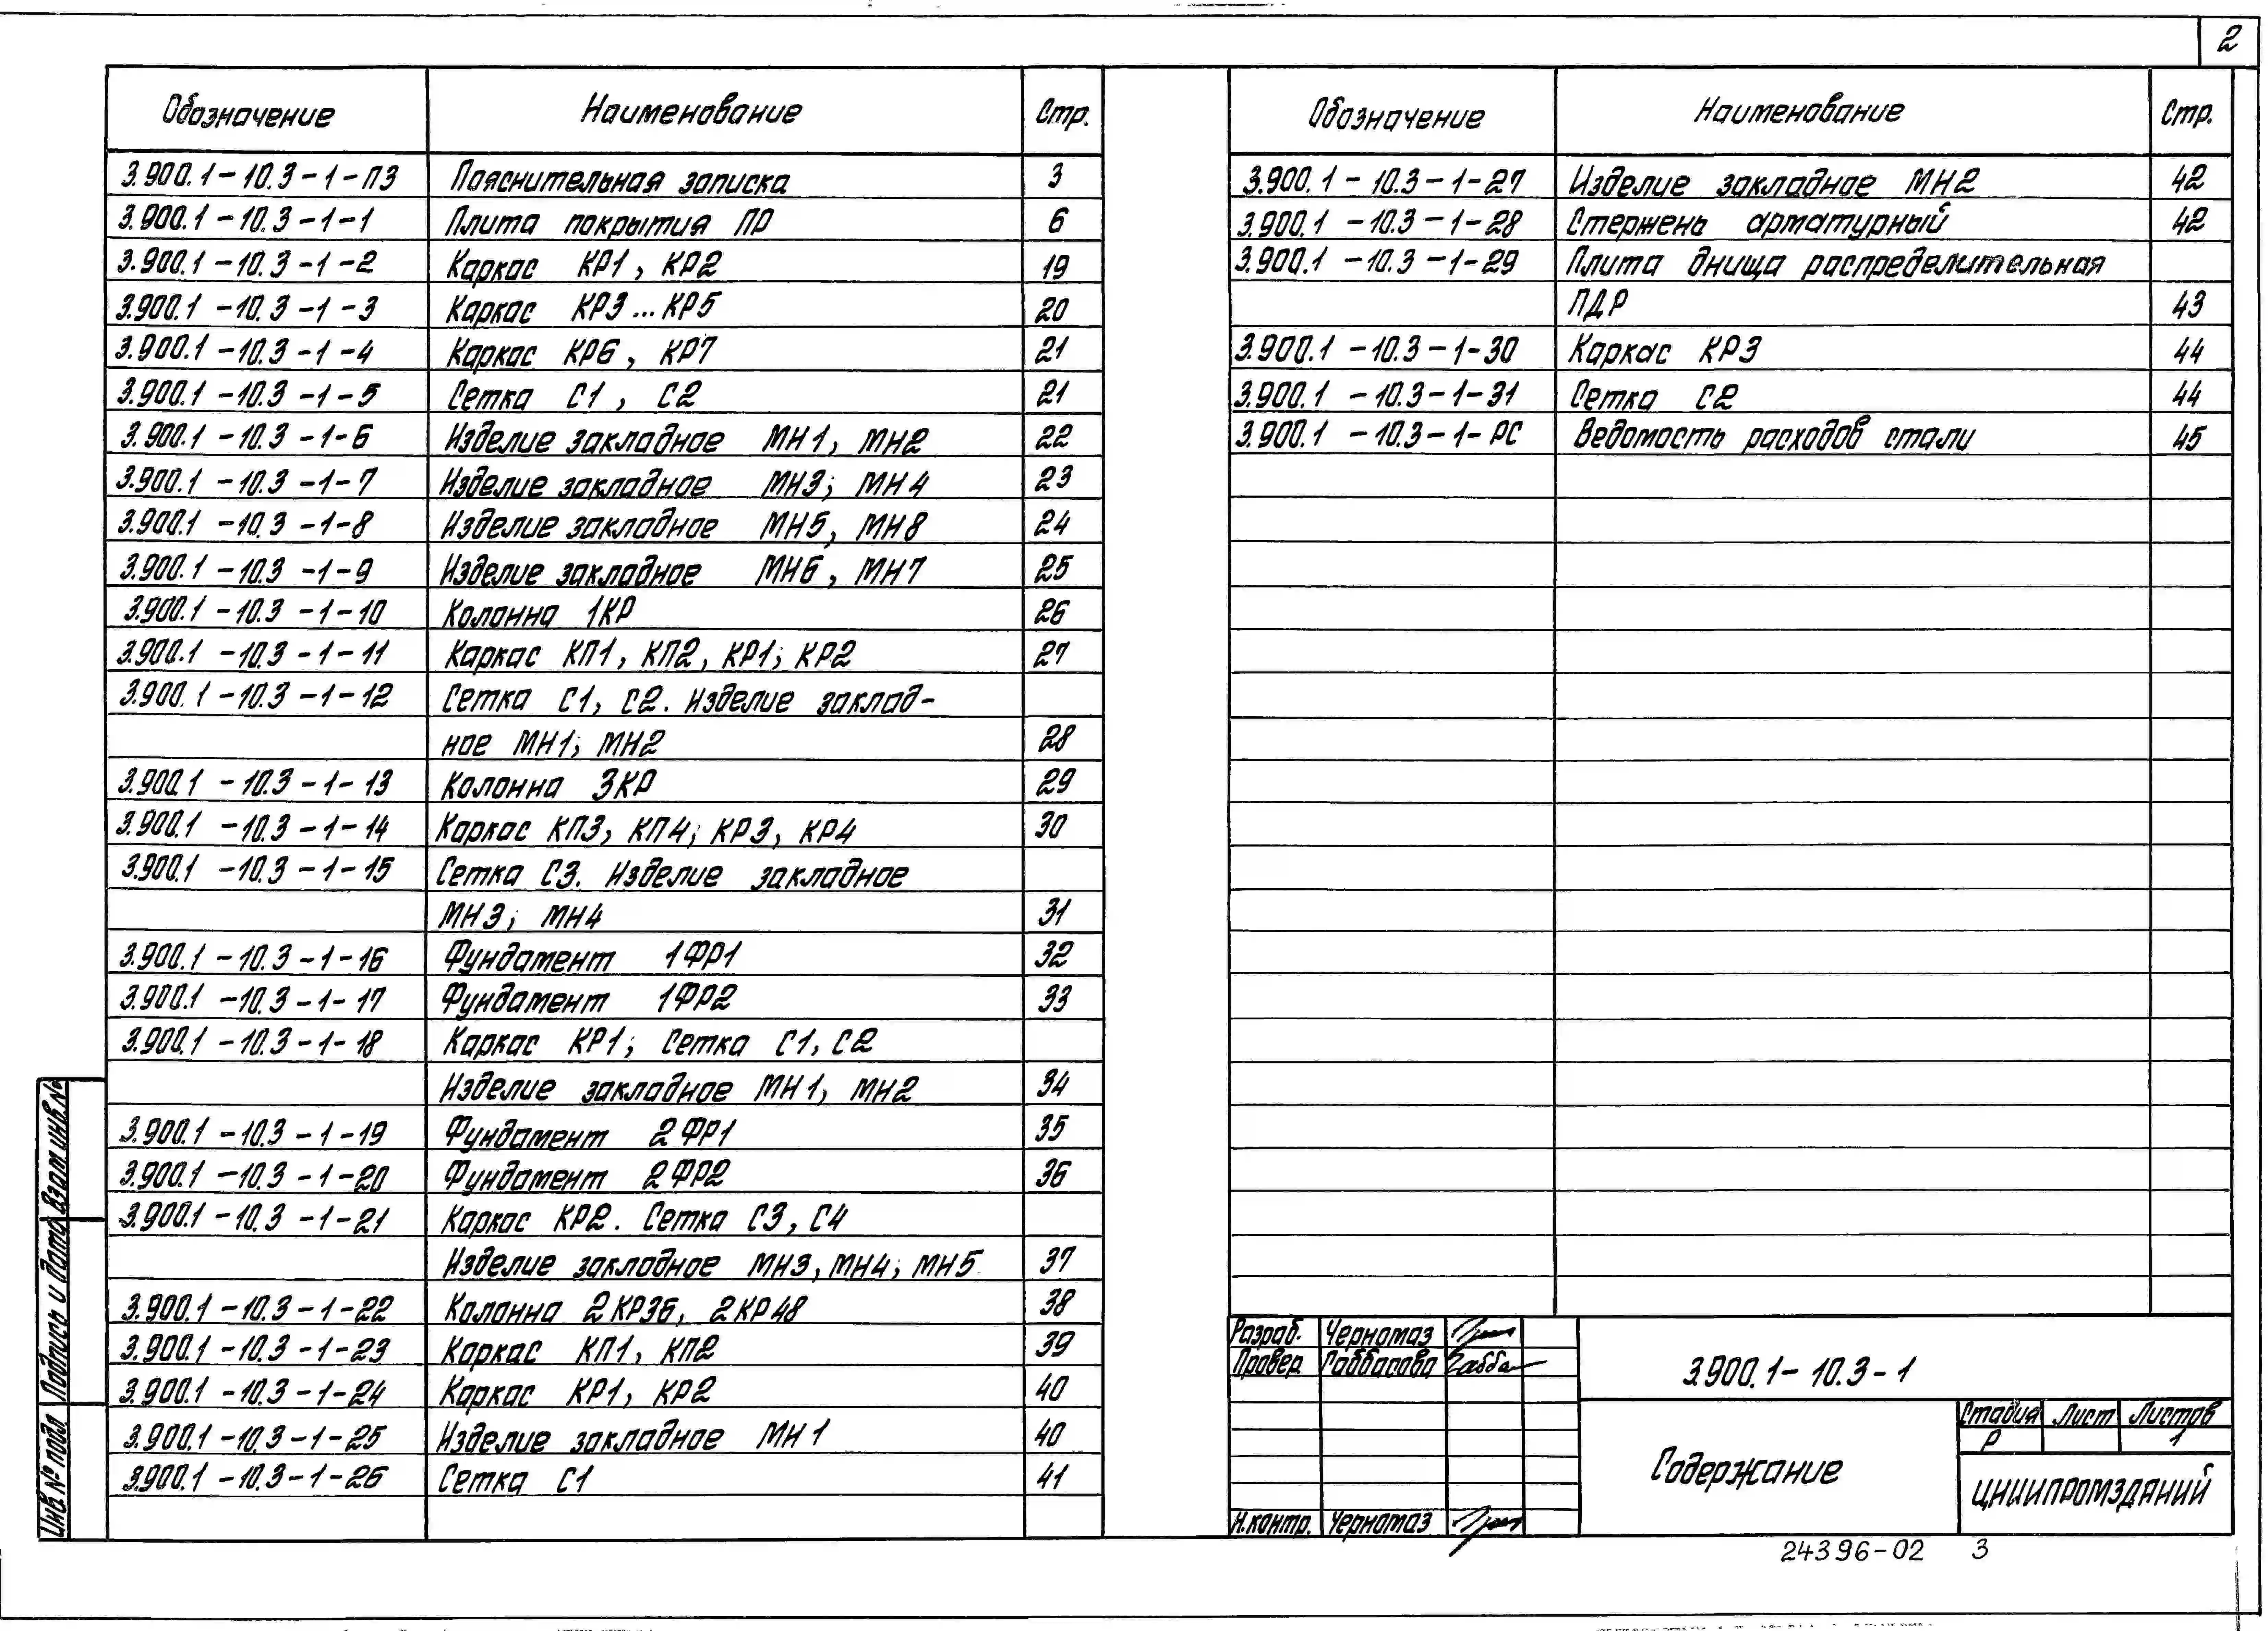 2
Обозначение Наименование Стр.
3.900.1-10.3-1-ПЗ Пояснительная записка 3
3.900.1-10.3-1-1 Плита покрытия ПР 6
3.900.1-10.3-1-2 Каркас КР1, КР2 19
3.900.1-10.3-1-3 Каркас КР3...КР5 20
3.900.1-10.3-1-4 Каркас КР6, КР7 21
3.900.1-10.3-1-5 Сетка С1, С2 21
3.900.1-10.3-1-6 Изделие закладное МН1, МН2 22
3.900.1-10.3-1-7 Изделие закладное МН3; МН4 23
3.900.1-10.3-1-8 Изделие закладное МН5, МН8 24
3.900.1-10.3-1-9 Изделие закладное МН6, МН7 25
3.900.1-10.3-1-10 Колонна 1КР 26
3.900.1-10.3-1-11 Каркас КП1, КП2, КР1; КР2 27
3.900.1-10.3-1-12 Сетка С1, С2. Изделие заклад-
ное МН1; МН2 28
3.900.1-10.3-1-13 Колонна 3КР 29
3.900.1-10.3-1-14 Каркас КП3, КП4; КР3, КР4 30
3.900.1-10.3-1-15 Сетка С3. Изделие закладное
МН3; МН4 31
3.900.1-10.3-1-16 Фундамент 1ФР1 32
3.900.1-10.3-1-17 Фундамент 1ФР2 33
3.900.1-10.3-1-18 Каркас КР1; Сетка С1, С2
Изделие закладное МН1, МН2 34
3.900.1-10.3-1-19 Фундамент 2ФР1 35
3.900.1-10.3-1-20 Фундамент 2ФР2 36
3.900.1-10.3-1-21 Каркас КР2. Сетка С3, С4
Изделие закладное МН3, МН4; МН5 37
3.900.1-10.3-1-22 Колонна 2КР36, 2КР48 38
3.900.1-10.3-1-23 Каркас КП1, КП2 39
3.900.1-10.3-1-24 Каркас КР1, КР2 40
3.900.1-10.3-1-25 Изделие закладное МН1 40
3.900.1-10.3-1-26 Сетка С1 41
Обозначение Наименование Стр.
3.900.1-10.3-1-27 Изделие закладное МН2 42
3.900.1-10.3-1-28 Стержень арматурный 42
3.900.1-10.3-1-29 Плита днища распределительная
ПДР 43
3.900.1-10.3-1-30 Каркас КР3 44
3.900.1-10.3-1-31 Сетка С2 44
3.900.1-10.3-1-РС Ведомость расходов стали 45
Инв № подл Подпись и дата Взам инв. №
Разраб. Черномаз
Провер Габбасова Габба
Н.контр. Черномаз
3.900.1-10.3-1
Содержание
Стадия Лист Листов
Р 1
ЦНИИПРОМЗДАНИЙ
24396-02 3